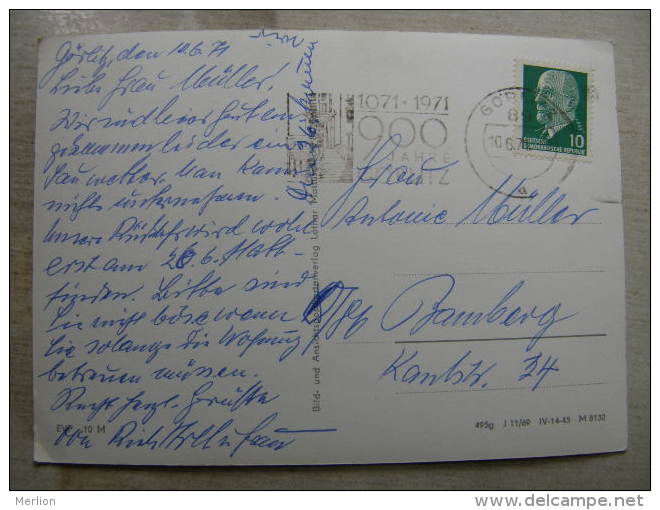 Görlitz, den 10.6.71
Liebe Frau Müller!
Wir sind hier gut an
gekommen leider ein
Sauwetter. Man kann
nichts unternehmen.
Unsere Rückfahrt wird wohl
erst am 26.6. Statt-
finden. Bitte sind
Sie nicht böse wenn
Sie solange die Wohnung
betreuen müssen.
Recht herzl. Grüsse
von
1071 · 1971
900
JAHRE
10
DEUTSCHE
DEMOKRATISCHE REPUBLIK
Frau
Antonie Müller
Bamberg
Kantstr. 34
Bild- und Ansichtskartenverlag Lothar
10 M
495g J 11/69 IV-14-45 M 8132
Merlion
www.delcampe.net